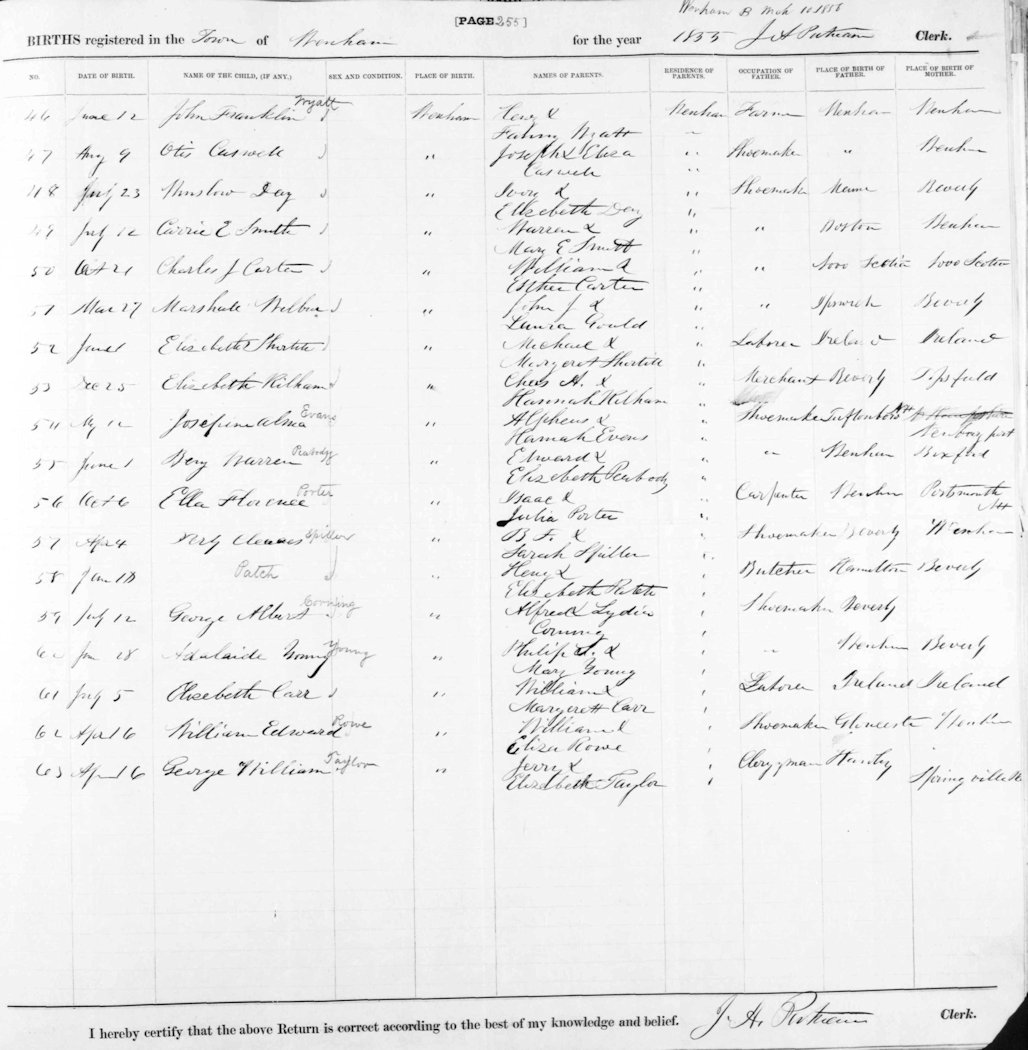 Wenham B Mch 10 1858
[PAGE 255]
BIRTHS registered in the Town of Wenham for the year 1855 J A Putnam Clerk.
NO. DATE OF BIRTH. NAME OF THE CHILD, (IF ANY.) SEX AND CONDITION. PLACE OF BIRTH. NAMES OF PARENTS. RESIDENCE OF PARENTS. OCCUPATION OF FATHER. PLACE OF BIRTH OF FATHER. PLACE OF BIRTH OF MOTHER.
46 June 12 John Franklin Wyatt Wenham Henry & Wenham Farmer Wenham Wenham
Wyatt
47 Aug 9 Otis Caswell " Joseph & Eliza " Shoemaker " Wenham
Caswell "
48 July 23 Winslow Dey " Ivory & " Shoemaker Maine Beverly
Elizabeth Dey "
49 July 12 Carrie E Smith " Warren & " " Boston Wenham
Mary E Smith "
50 Oct 21 Charles J Carter " William & " " Nova Scotia Nova Scotia
Esther Carter "
51 Mar 27 Marshall Wilbur " John J. & " " Ipswich Beverly
Laura Gould "
52 June 1 Elizabeth " Michael & " Laborer Ireland Ireland
Margaret "
53 Dec 25 Elizabeth Kilham " Chas H. & " Merchant Beverly Topsfield
Hannah Kilham "
54 12 Josephine Alma Evans " Alpheus & " Shoemaker Tuftonboro NH
Hannah Evens " Newburyport
55 June 1 Benj Warren Peabody " Edward & " " Wenham Boxford
Elizabeth Peabody "
56 Oct 6 Ella Florence Porter " Isaac & " Carpenter Wenham Portsmouth NH
Julia Porter "
57 Apr 4 Cleaves Spiller " B F. & " Shoemaker Beverly Wenham
Sarah Spiller "
58 Jan 18 Patch " Henry & " Butcher Hamilton Beverly
Elizabeth Patch "
59 July 12 George Albert Corning " Alfred & Lydia " Shoemaker Beverly
Corning "
60 Jan 28 Adalaide Young Young " Philip & " " Wenham Beverly
Mary Young "
61 July 5 Elisebeth Carr " William & " Laborer Ireland Ireland
Margerett Carr "
62 Apr 16 William Edward Rowe " William & " Shoemaker Gloucester Wenham
Eliza Rowe "
63 Apr 16 George William Taylor " Jerry & " Clergyman Hawley
Elizabeth Taylor " Springville
I hereby certify that the above Return is correct according to the best of my knowledge and belief. J. A. Putnam Clerk.